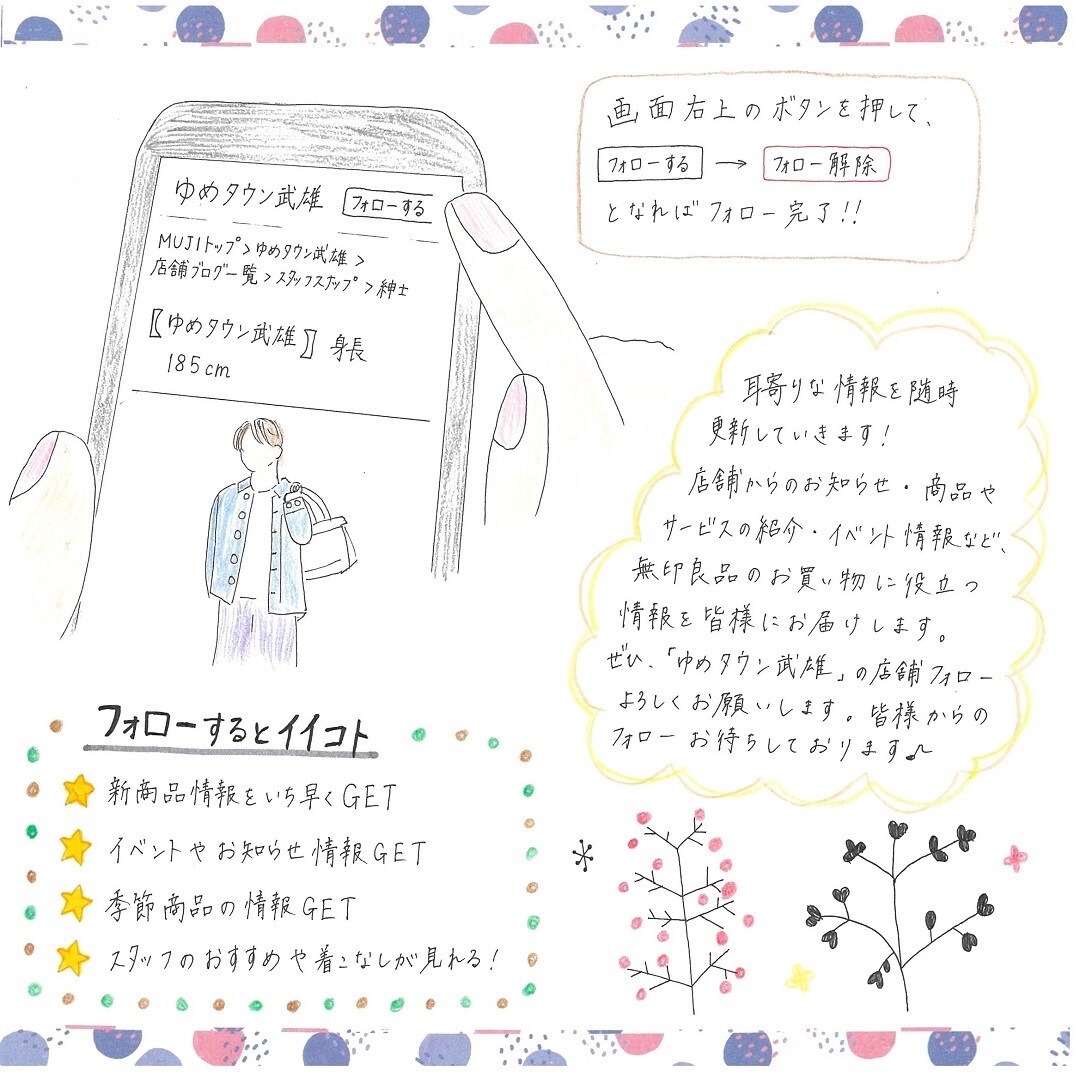 ゆめタウン武雄 フォローする
MUJIトップ>ゆめタウン武雄>
店舗ブログ一覧>スタッフスナップ>紳士
〖ゆめタウン武雄〗身長
185cm
画面右上のボタンを押して、
フォローする → フォロー解除
となればフォロー完了!!
耳寄りな情報を随時
更新していきます!
店舗からのお知らせ・商品や
サービスの紹介・イベント情報など、
無印良品のお買い物に役立つ
情報を皆様にお届けします。
ぜひ、「ゆめタウン武雄」の店舗フォロー
よろしくお願いします。皆様からの
フォローお待ちしております♪
フォローするとイイコト
新商品情報をいち早くGET
イベントやお知らせ情報GET
季節商品の情報GET
スタッフのおすすめや着こなしが見れる!